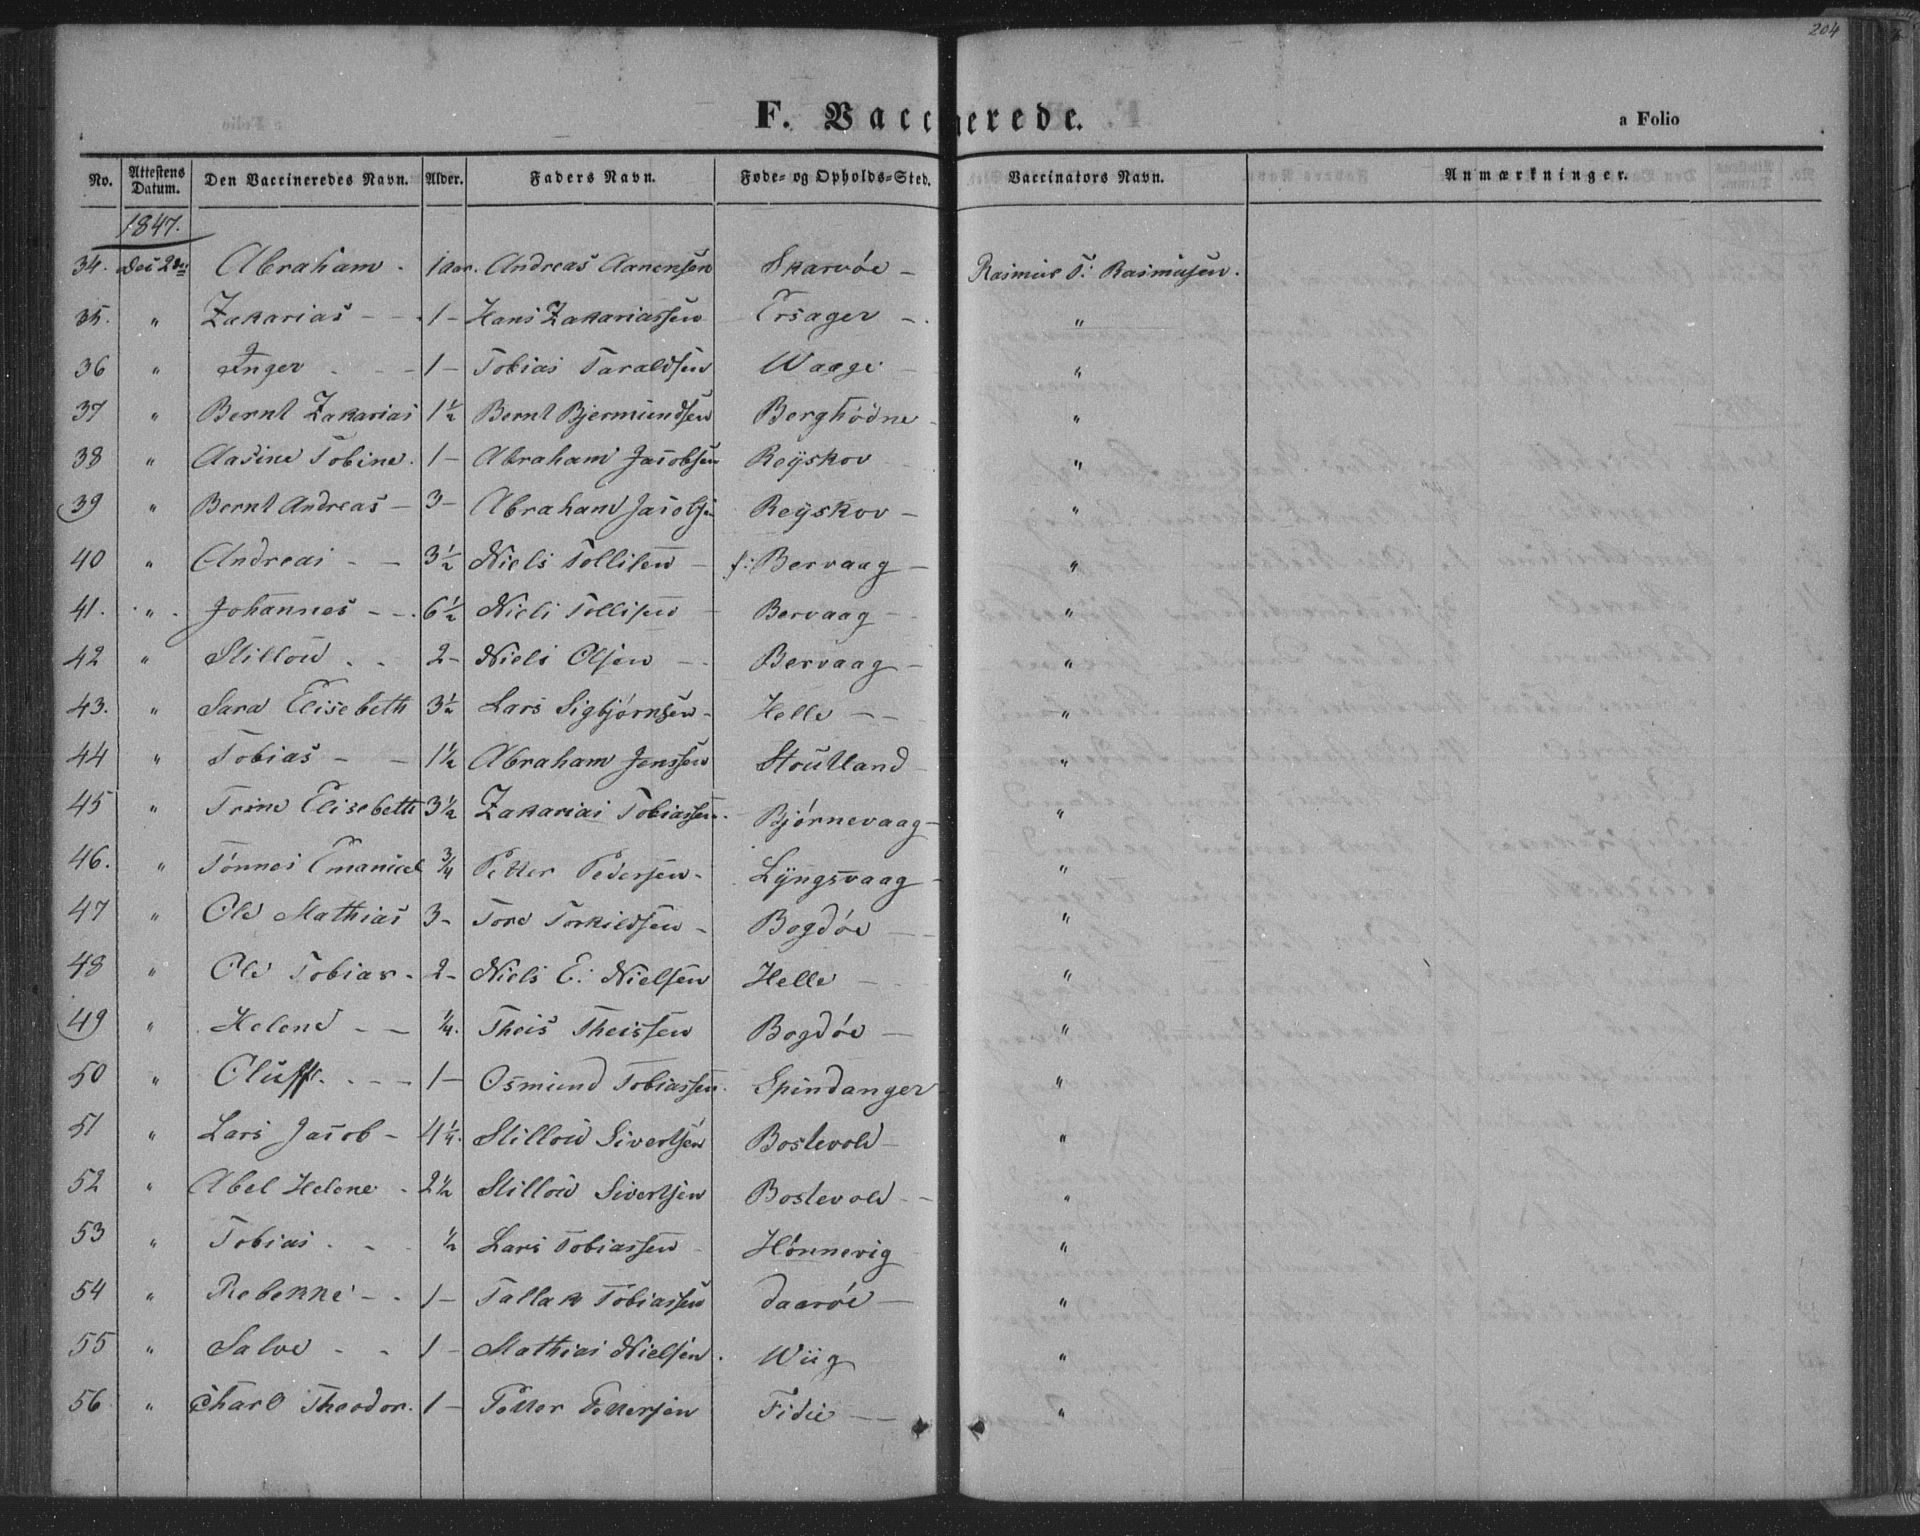 204
F. Vaccinerede.
a Folio
No. Attestens Datum. Den Vaccineredes Navn. Alder. Faders Navn. Føde- og Opholds-Sted. Vaccinators Navn. Anmærkninger.
1847.
34. Abraham - 1 aar. Andreas Aanensen Skarvöe - Rasmus T. Rasmusen.
35. " Zakarias - - 1 - Hans Zakariassen Ersager - "
36 " Inger - - 1 - Tobias Taraldsen Waage - "
37 " Bernt Zakarias 1½ Bernt Bjermundsen Berghödne - "
38 " Aasine Tobine. 1 - Abraham Jacobsen Reÿskov "
39 " Bernt Andreas - 3 - Abraham Jacobsen Reÿskov - "
40 " Andreas - - 3½ Niels Tollisen - f: Bervaag - "
41. " Johannes - - 6½ Niels Tollisen - Bervaag - "
42 " Stillou - - 2 - Niels Olsen - - Bervaag - "
43. " Sara Elisebeth 3½ Lars Sigbjørnsen - Helle - - "
44 " Tobias - - 1½ Abraham Jenssen Stoutland - "
45 " Trine Elisebeth 3½ Zakarias Tobiassen. Bjørnevaag - "
46. " Tönnes Emanuel ¾ Petter Pedersen - Lÿngsvaag - "
47 " Ole Mathias 3 - Tore Torkildsen - Bogdøe - - "
48 " Ole Tobias - 2 - Niels E. Nielsen Helle - - "
49 " Helene - - ¼. Theis Theissen Bogdóe - "
50 " Oluff. - - - 1 - Osmund Tobiassen. Spindanger "
51 " Lars Jacob - 4¼. Stillou Sivertsen Bostevold - "
52 " Abel Helene - 2½ Stillou Sivertsen Bostevold - - "
53 " Tobias - - ½ Lars Tobiassen - Hönnevig "
54 " Rebekke - - 1 - Tallak Tobiassen Daaröe - "
55 " Salve - - 1 - Mathias Nielsen. Wiig "
56 " Charl Theodor. 1 - Petter Pettersen Fidie - - "